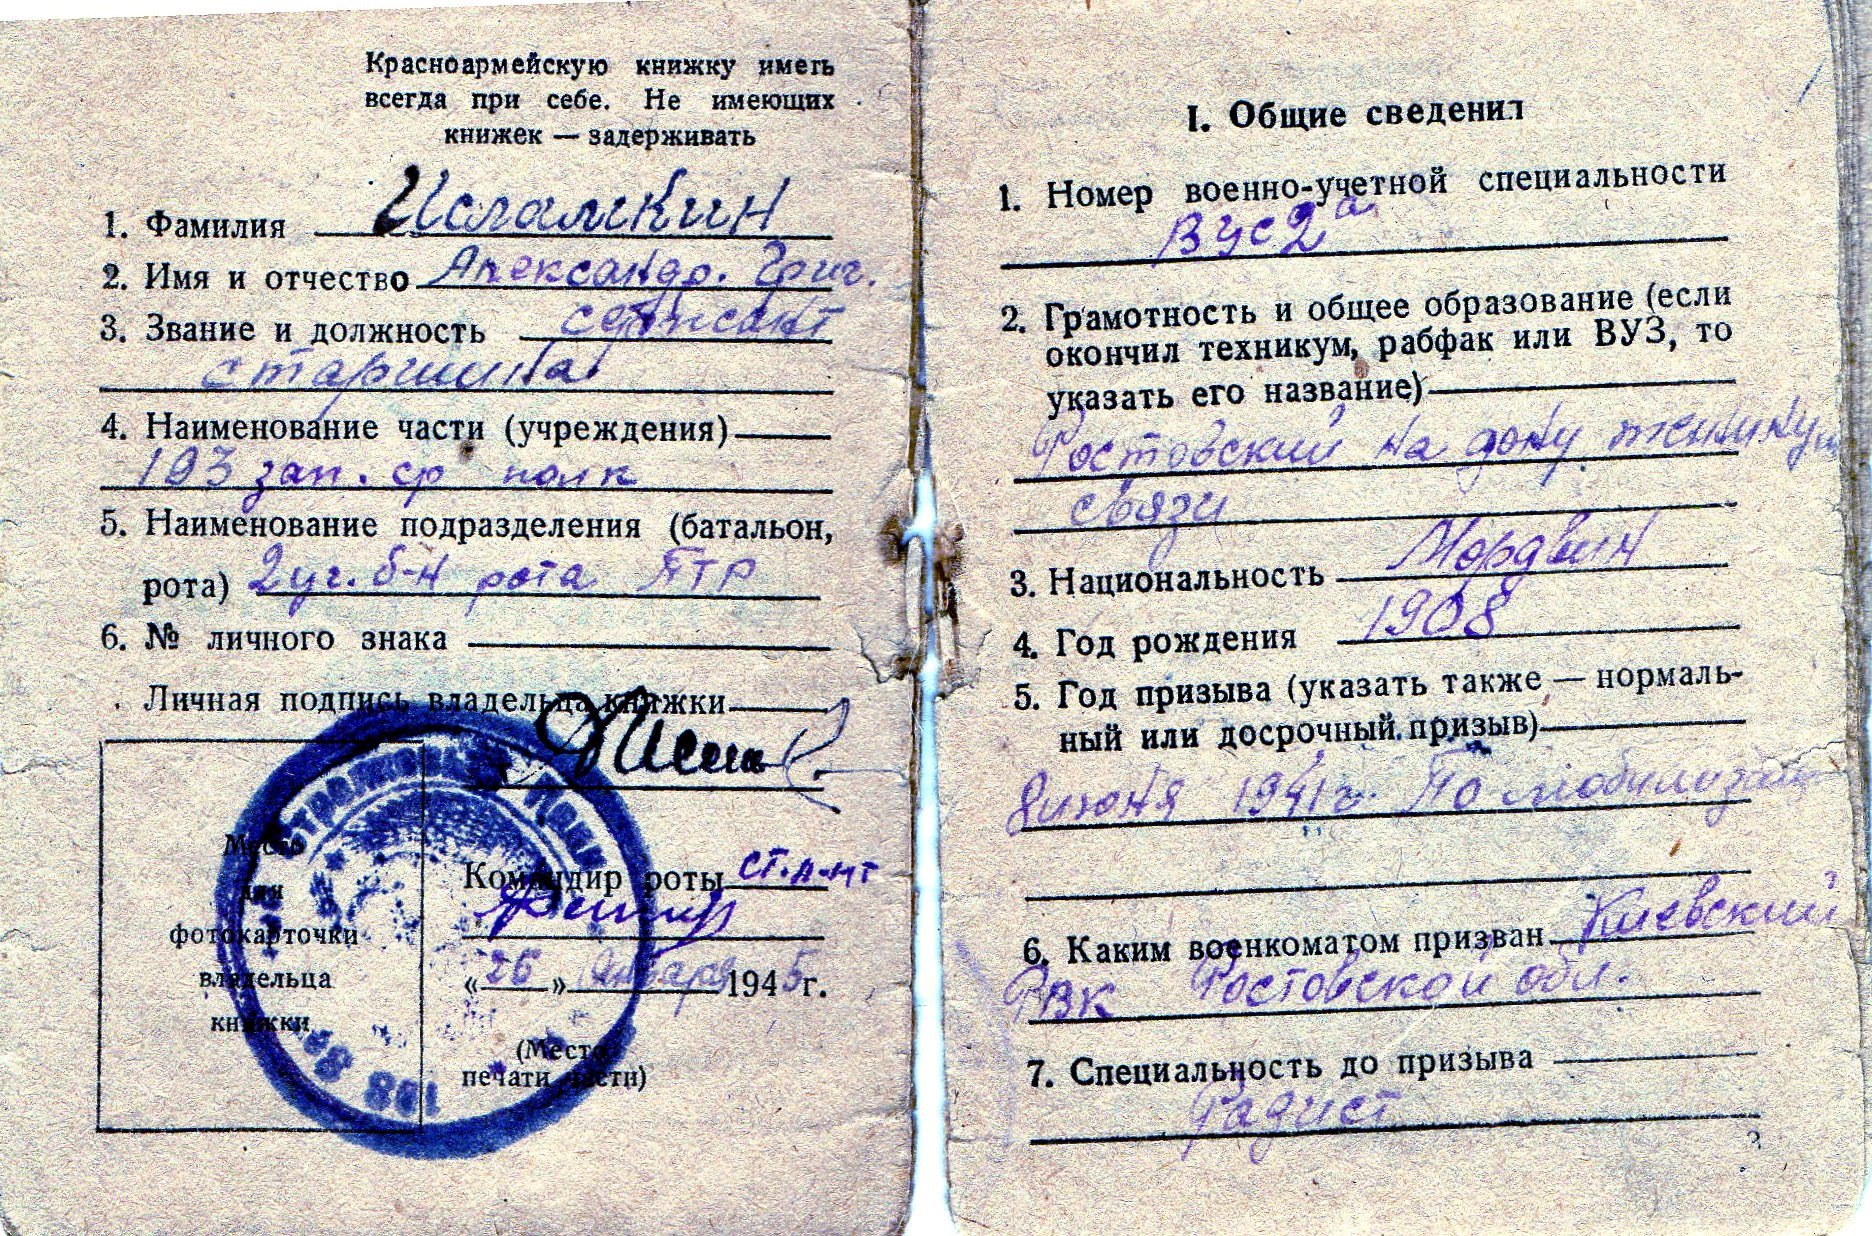 Красноармейскую книжку иметь
всегда при себе. Не имеющих
книжек — задерживать
1. Фамилия Исламкин
2. Имя и отчество Александр. Григ.
3. Звание и должность сержант
старшина
4. Наименование части (учреждения)
193 зап. ср полк
5. Наименование подразделения (батальон,
рота) 2 уч. б-н рота ПТР
6. № личного знака
Личная подпись владельца книжки
Место
для
фотокарточки
владельца
книжки
Командир роты ст. л-нт
«26» января 1945 г.
(Место
печати части)
I. Общие сведения
1. Номер военно-учетной специальности
ВУС 2а
2. Грамотность и общее образование (если
окончил техникум, рабфак или ВУЗ, то
указать его название)
Ростовский на дону техникум
связи
3. Национальность Мордвин
4. Год рождения 1908
5. Год призыва (указать также — нормаль-
ный или досрочный призыв)
июня 1941 г. По мобилизации
6. Каким военкоматом призван Киевский
РВК Ростовской обл.
7. Специальность до призыва
Радист